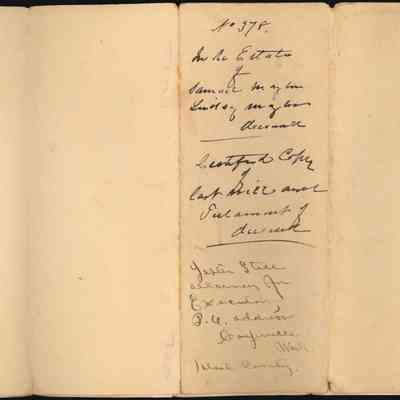 No 378.
In re Estate
of
Samuel Maylor
Lindsey Maylor
deceased
Certified Copy
of
Last Will and
Testament of
deceased
Lester Still
attorney for
Executor,
P.O. address
Coupeville
Wash
Island County.